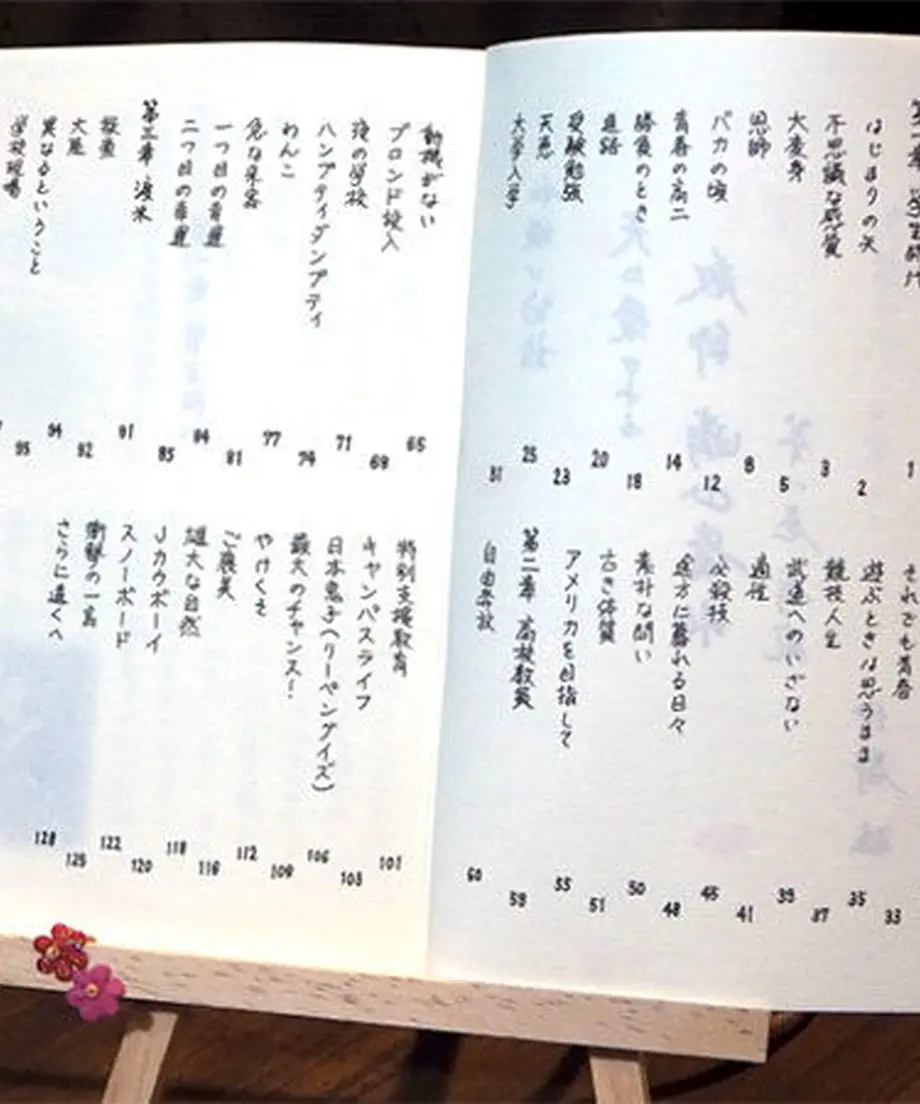 学生時代 1
はじまりの矢 2
不思議な感覚 3
大変身 5
恩師 8
バカの頃 12
青春の高二 14
勝負のとき 18
進路 20
受験勉強 23
25
大学入学 31
それでも青春 33
遊ぶときは思うまま 35
競技人生 37
武道へのいざない 39
適性 41
必殺技 45
途方に暮れる日々 48
素朴な問い 50
古き体質 51
アメリカを目指して 55
第二章 高校教員 59
自由奔放 60
動機がない 65
ブロンド投入 69
夜の学校 71
ハンプティダンプティ 74
わんこ 77
危な来客 81
一つ目の 84
二つ目の 85
第三章 渡米 91
授業 92
94
異なるということ 95
学校現場
特別支援教育 101
キャンパスライフ 103
日本鬼子(リーベングイズ) 106
最大のチャンス! 109
やけくそ 112
ご褒美 116
雄大な自然 118
Jカウボーイ 120
スノーボード 122
衝撃の一言 125
さらに遠くへ 128